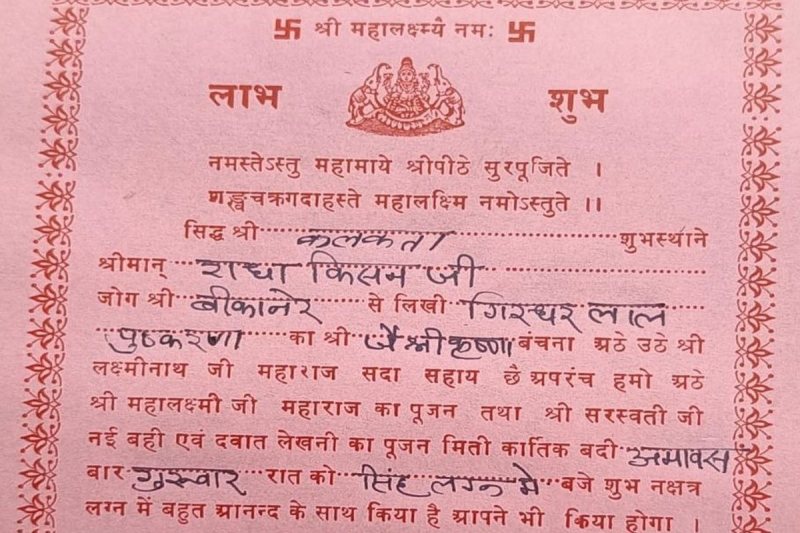 卐 श्री महालक्ष्म्यै नमः 卐
लाभ शुभ
नमस्तेऽस्तु महामाये श्रीपीठे सुरपूजिते ।
शङ्खचक्रगदाहस्ते महालक्ष्मि नमोऽस्तुते ।।
सिद्ध श्री कलकता शुभस्थाने
श्रीमान् राधा किसन जी
जोग श्री बीकानेर से लिखी गिरधर लाल
पुष्करणा का श्री जै श्री कृष्णा बंचना अठे उठे श्री
लक्ष्मीनाथ जी महाराज सदा सहाय छै अपरंच हमो अठे
श्री महालक्ष्मी जी महाराज का पूजन तथा श्री सरस्वती जी
नई बही एवं दवात लेखनी का पूजन मिती कार्तिक बदी अमावस
बार गुरुवार रात को सिंह लग्न मे बजे शुभ नक्षत्र
लग्न में बहुत आनन्द के साथ किया है आपने भी किया होगा ।